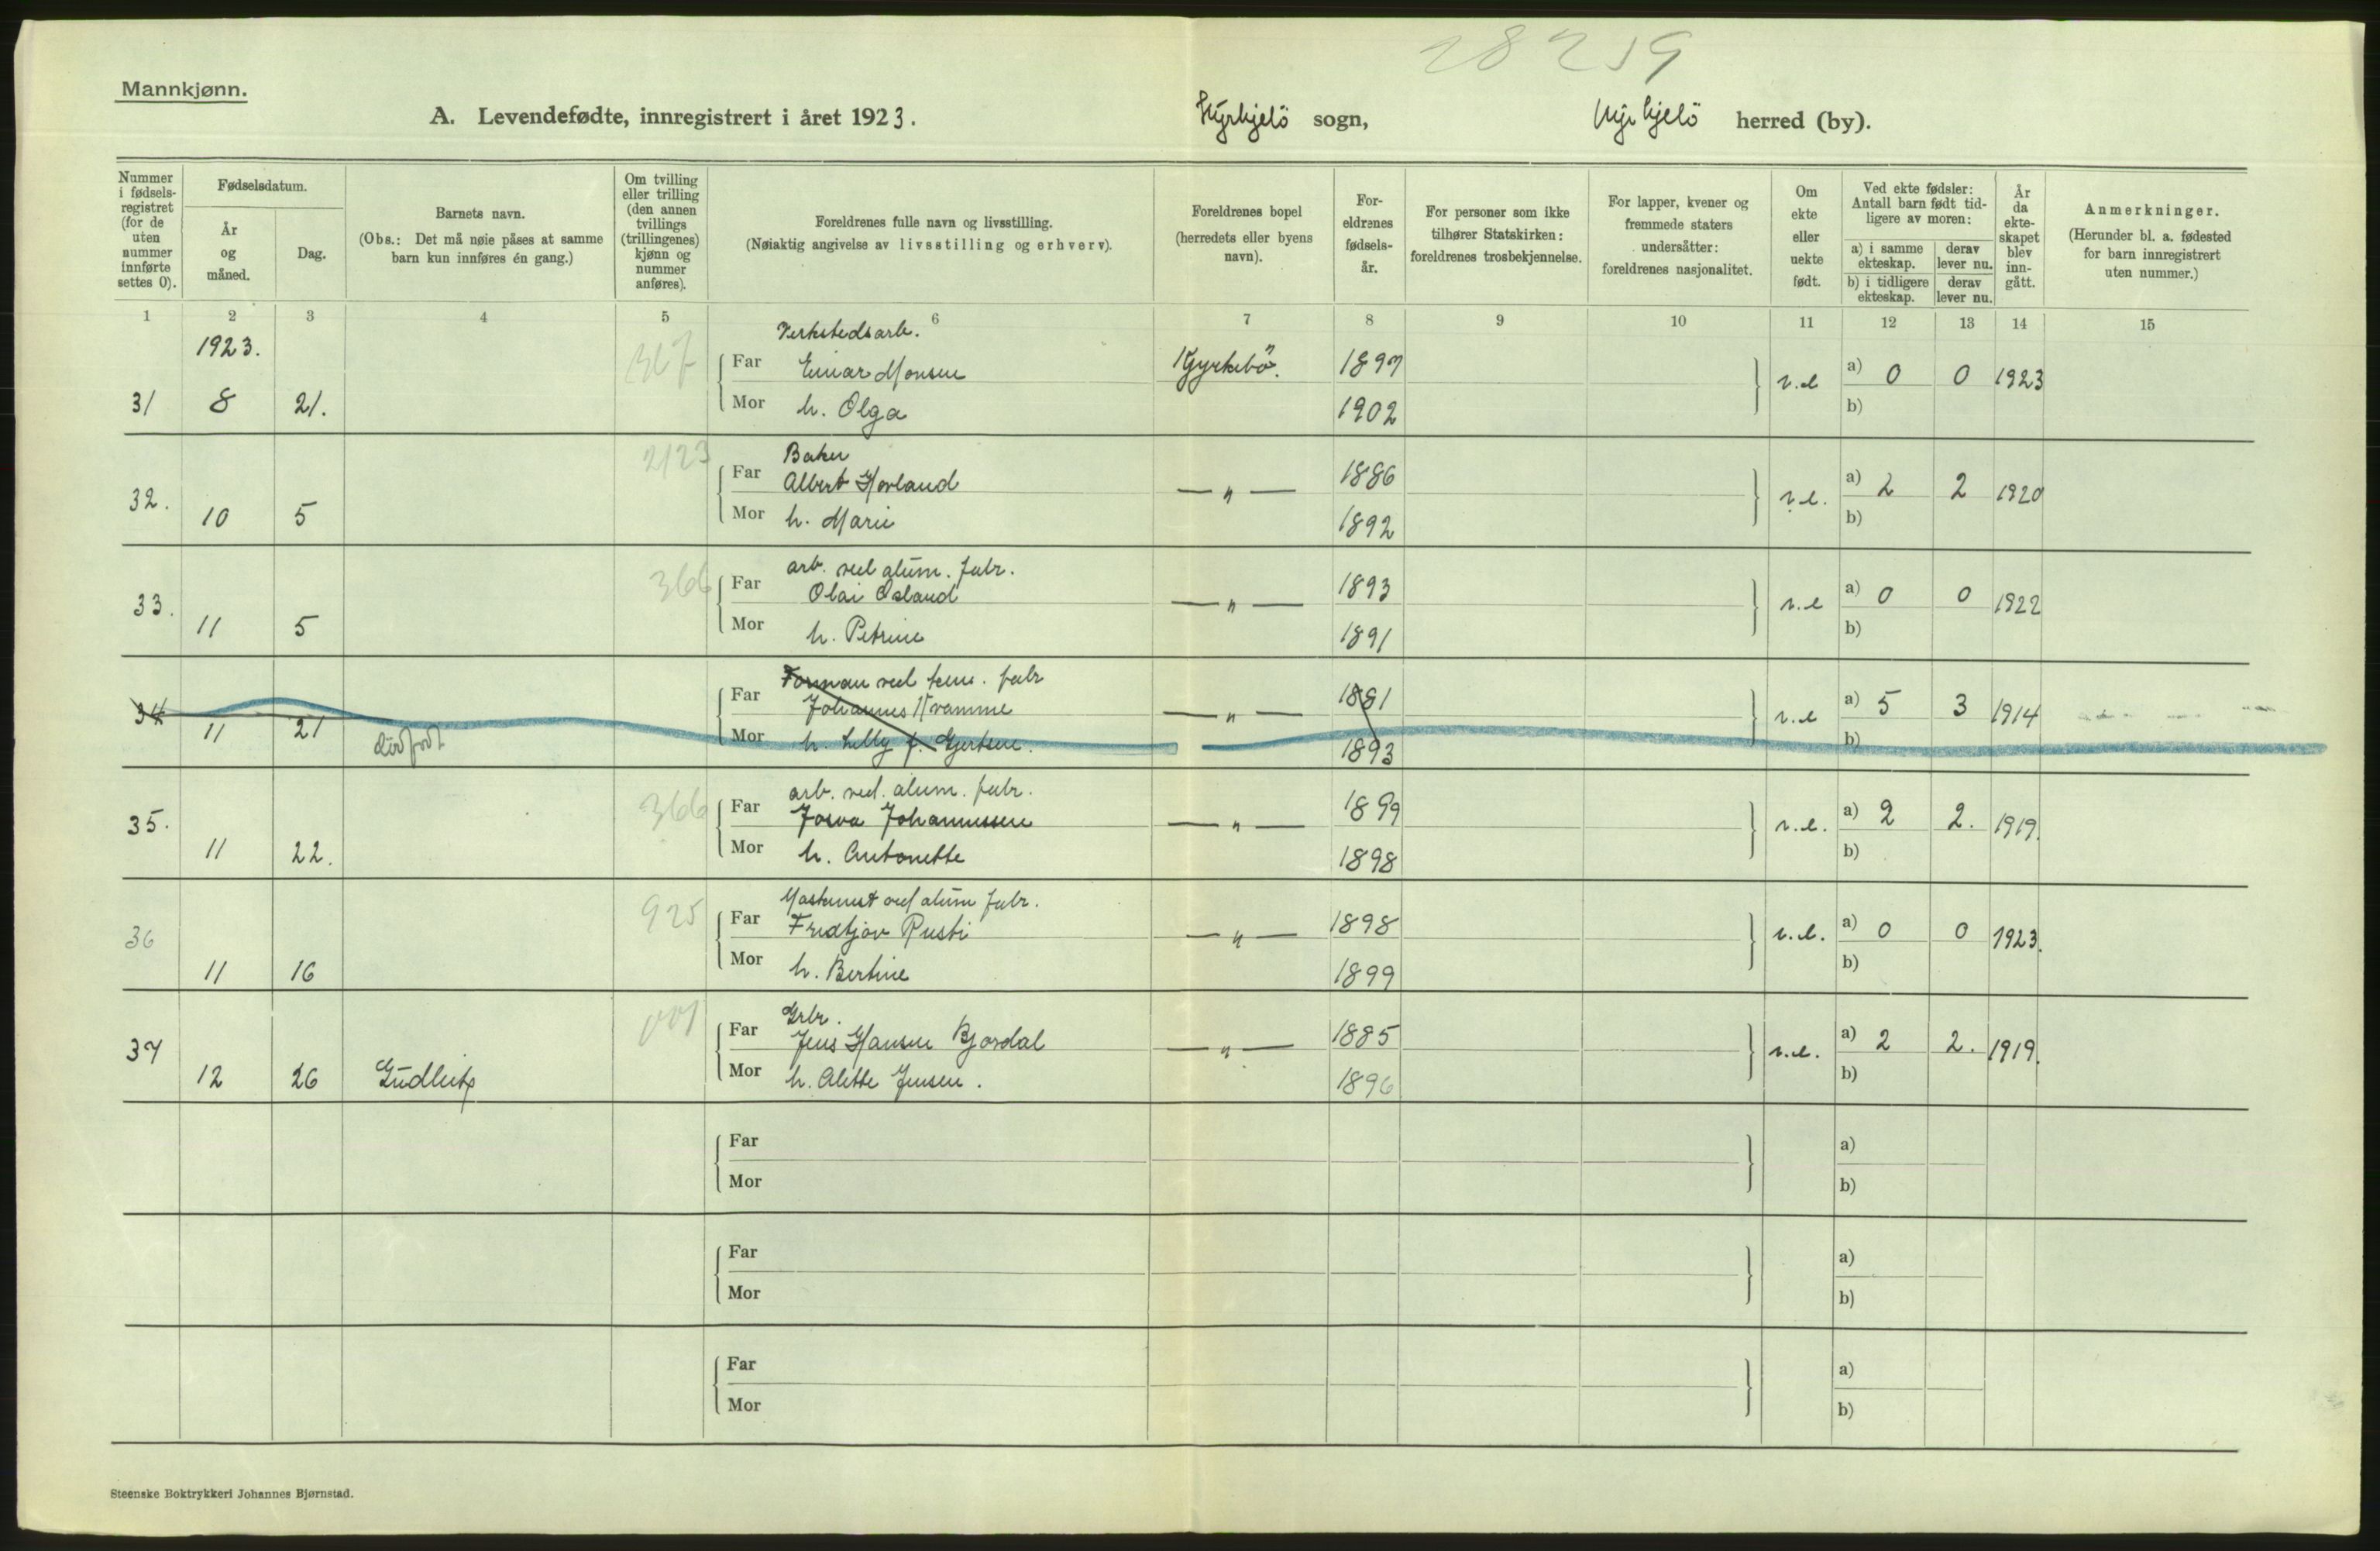 28259
Mannkjønn.
A. Levendefødte, innregistrert i året 1923. Kyrkjebö sogn, Kyrkjebö herred (by).
Nummer i fødsels-registret (for de uten nummer innførte settes 0).
Fødselsdatum.
År og måned.
Dag.
Barnets navn.
(Obs.: Det må nøie påses at samme barn kun innføres én gang.)
Om tvilling eller trilling (den annen tvillings (trillingenes) kjønn og nummer anføres).
Foreldrenes fulle navn og livsstilling.
(Nøiaktig angivelse av livsstilling og erhverv).
Foreldrenes bopel (herredets eller byens navn).
For-eldrenes fødsels-år.
For personer som ikke tilhører Statskirken: foreldrenes trosbekjennelse.
For lapper, kvener og fremmede staters undersåtter: foreldrenes nasjonalitet.
Om ekte eller uekte født.
Ved ekte fødsler: Antall barn født tid-ligere av moren:
a) i samme ekteskap. derav lever nu.
b) i tidligere ekteskap. derav lever nu.
År da ekte-skapet blev inn-gått.
Anmerkninger.
(Herunder bl. a. fødested for barn innregistrert uten nummer.)
1 2 3 4 5 6 7 8 9 10 11 12 13 14 15
1923. 367 Verkstedsarb.
Far Einar Monsen Kyrkebö. 1897 a) 0 0 1923
31 8 21. Mor h. Olga 1902 b)
2123 Baker
32. Far Albert Hovland — " — 1886 a) 2 2 1920
10 5 Mor h. Marie 1892 b)
366 arb. ved alum. fabr.
33. Far Olai Osland — " — 1893 a) 0 0 1922
11 5 Mor h. Petrine 1891 b)
Forman ved fabr
34 Far Johannes Kvamme — " — 1881 a) 5 3 1914
11 21 dödfödt Mor h. Lelly f. Gjertsen. 1893 b)
366 arb. ved. alum. fabr.
35. Far Josva Johannessen — " — 1899 a) 2 2. 1919.
11 22. Mor h. Antonette 1898 b)
925 Maskinist ved alum fabr.
36 Far Fredtjov Rusti — " — 1898 a) 0 0 1923.
11 16 Mor h. Bertine 1899 b)
001 Grbr.
37 Far Jens Hansen Bjordal — " — 1885 a) 2 2. 1919.
12 26 Gudleik Mor h. Alette Jensen. 1896 b)
Far a)
Mor b)
Far a)
Mor b)
Far a)
Mor b)
Steenske Boktrykkeri Johannes Bjørnstad.